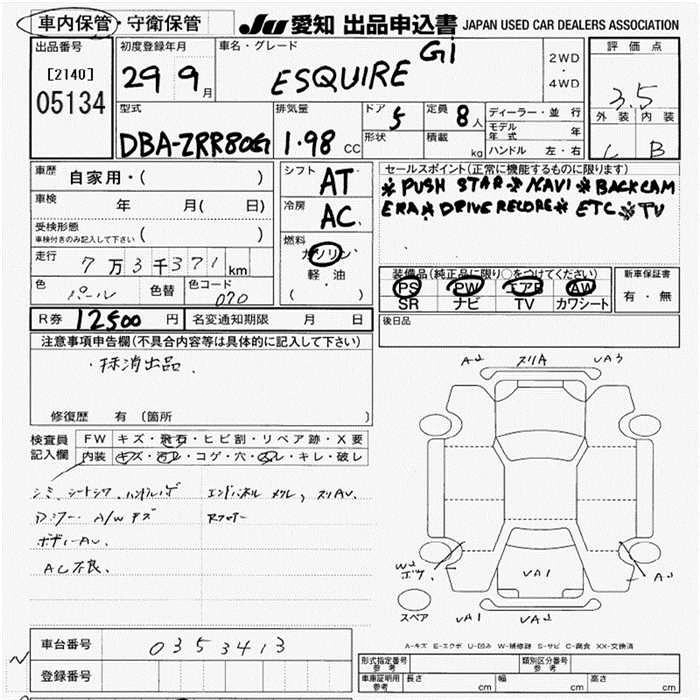 車内保管・守衛保管 JU 愛知 出品申込書 JAPAN USED CAR DEALERS ASSOCIATION
出品番号
[2140]
05134
初度登録年月
29 9月
車名・グレード
ESQUIRE Gi
2WD
・
4WD
評価点
3.5
外装 内装
C B
型式
DBA-ZRR80G
排気量
1.98 CC
ドア 5
形状
定員 8人
積載 kg
ディーラー・並行
モデル年式 年
ハンドル 左・右
車歴 自家用・( )
車検 年 月( 日)
受検形態
車検付きのみ記入して下さい ( )
走行 7万3千371km
色 パール 色替 色コード 070
シフト AT
冷房 AC
燃料
ガソリン
軽・油
( ・ )
セールスポイント(正常に機能するものに限ります)
※PUSH STAR※NAVI※BACKCAM
ERA※DRIVE RECORE※ETC※TV
装備品(純正品に限り○をつけてください)
PS PW エアB AW
SR ナビ TV カワシート
新車保証書
有・無
R券 12500円 名変通知期限 月 日
後日品
注意事項申告欄(不具合内容等は具体的に記入して下さい)
・抹消出品.
修復歴 有 (箇所
検査員
記入欄
FW キズ・飛石・ヒビ割・リペア跡・X要
内装 キズ・汚レ・コゲ・穴・スレ・キレ・破レ
シミ、シートシワ、ハンドルハゲ
A/W キズ
ボディーAU.
AC不良.
A2 スリA UA3
W2
UA1
A2
スペア
UA1 UA2
A-キズ E-エクボ U-凹み W-補修跡 S-サビ C-腐食 XX-交換済
車台番号 0353413
登録番号
型式指定番号
参考
類別区分番号
参考
車庫証明用
参考
長さ cm 幅 cm 高さ cm